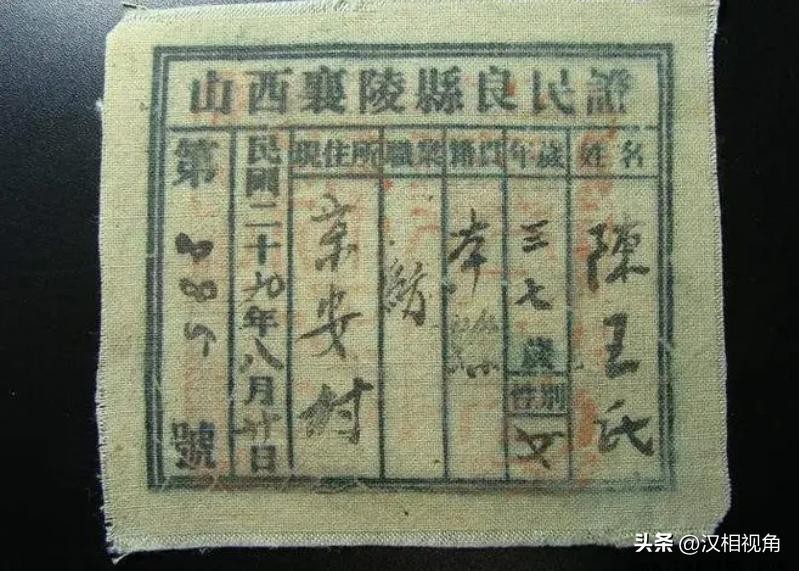 山西襄陵縣良民證
姓名
陳王氏
年歲
三七歲
性別
女
籍貫
本縣
職業
紡
現住所
安村
民國二十九年八月廿日
第
號
头条 @汉相视角